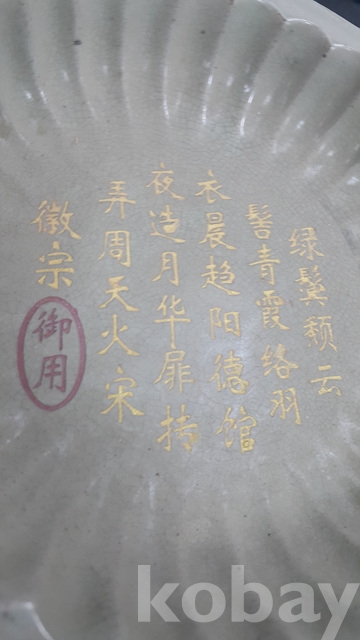 绿鬓颓云
髻青霞络羽
衣晨趋阳德馆
夜造月华扉抟
弄周天火宋
徽宗
御用
kobay